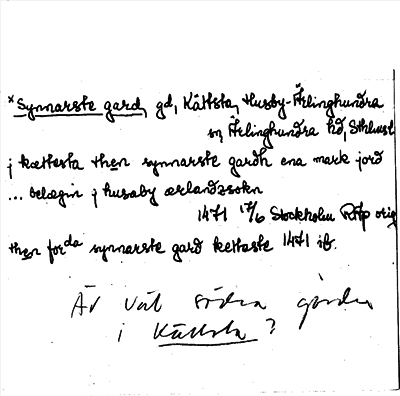 *Synnarste gard, gd, Kättsta, Husby-Ärlinghundra
sn, Ärlinghundra hd, Sthlmsl
j kættesta then synnarste gardh ena mark jord
... belægin j husaby ærlandæsokn
1471 17/6 Stockholm RAp orig
then forda synnarste gard kættaste 1471 ib.
Är väl södra gården
i Kättsta?